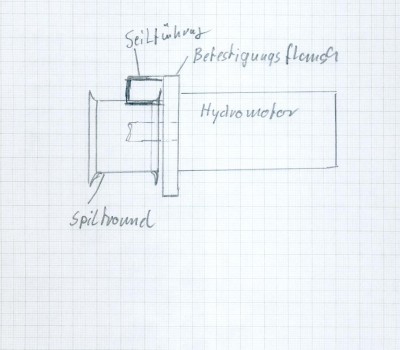 Seilführung
Befestigungsflansch
Hydromotor
Spilltround